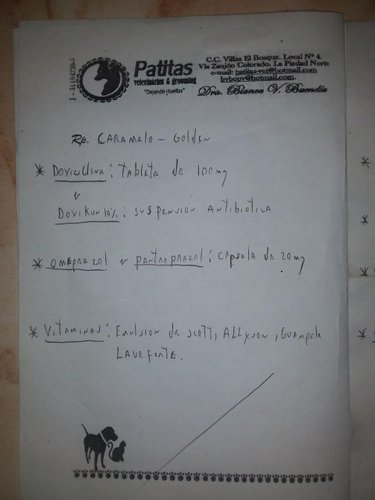 J-31194239-1
Patitas
veterinarios & grooming
"Dejando Huellas"
C.C. Villas El Bosque. Local Nº 4.
Vía Zanjón Colorado. La Piedad Norte
e-mail: patitas-vet@hotmail.com
bvbozv@hotmail.com
Dra. Blanca V. Buendía
Rp. CARAMELO - Golden
* DOXICICLINA: TABLETA DE 100mg
o
DOXIKUN 10%: SUSPENSION ANTIBIOTICA
* OMEPRAZOL o PANTOPRAZOL: CAPSULA DE 20mg
* VITAMINAS: EMULSION DE SCOTT, , GUAMPOLE
LAVEFORTE.